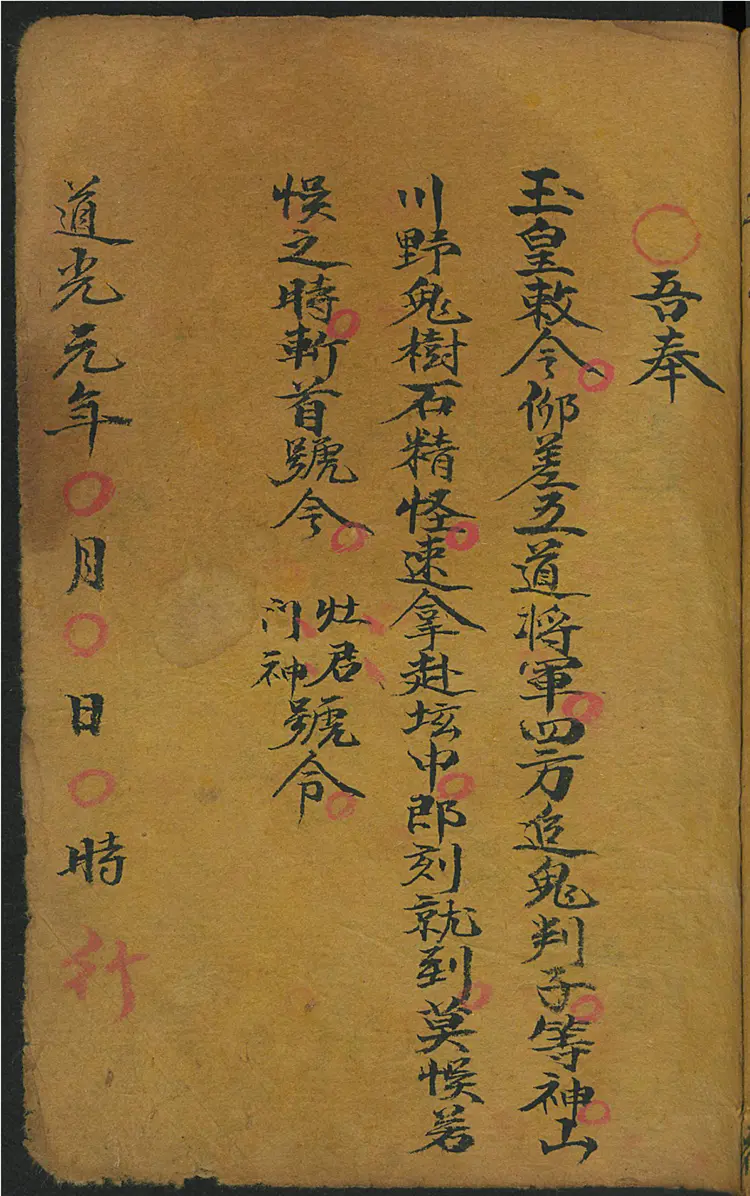 ○吾奉
玉皇敕令仰差五道将軍四方追鬼判子等神山
川野鬼樹石精怪速拿赴坛中即刻就到莫悮若
悮之時斬首號令 灶君門神號令
道光元年○月○日○時行